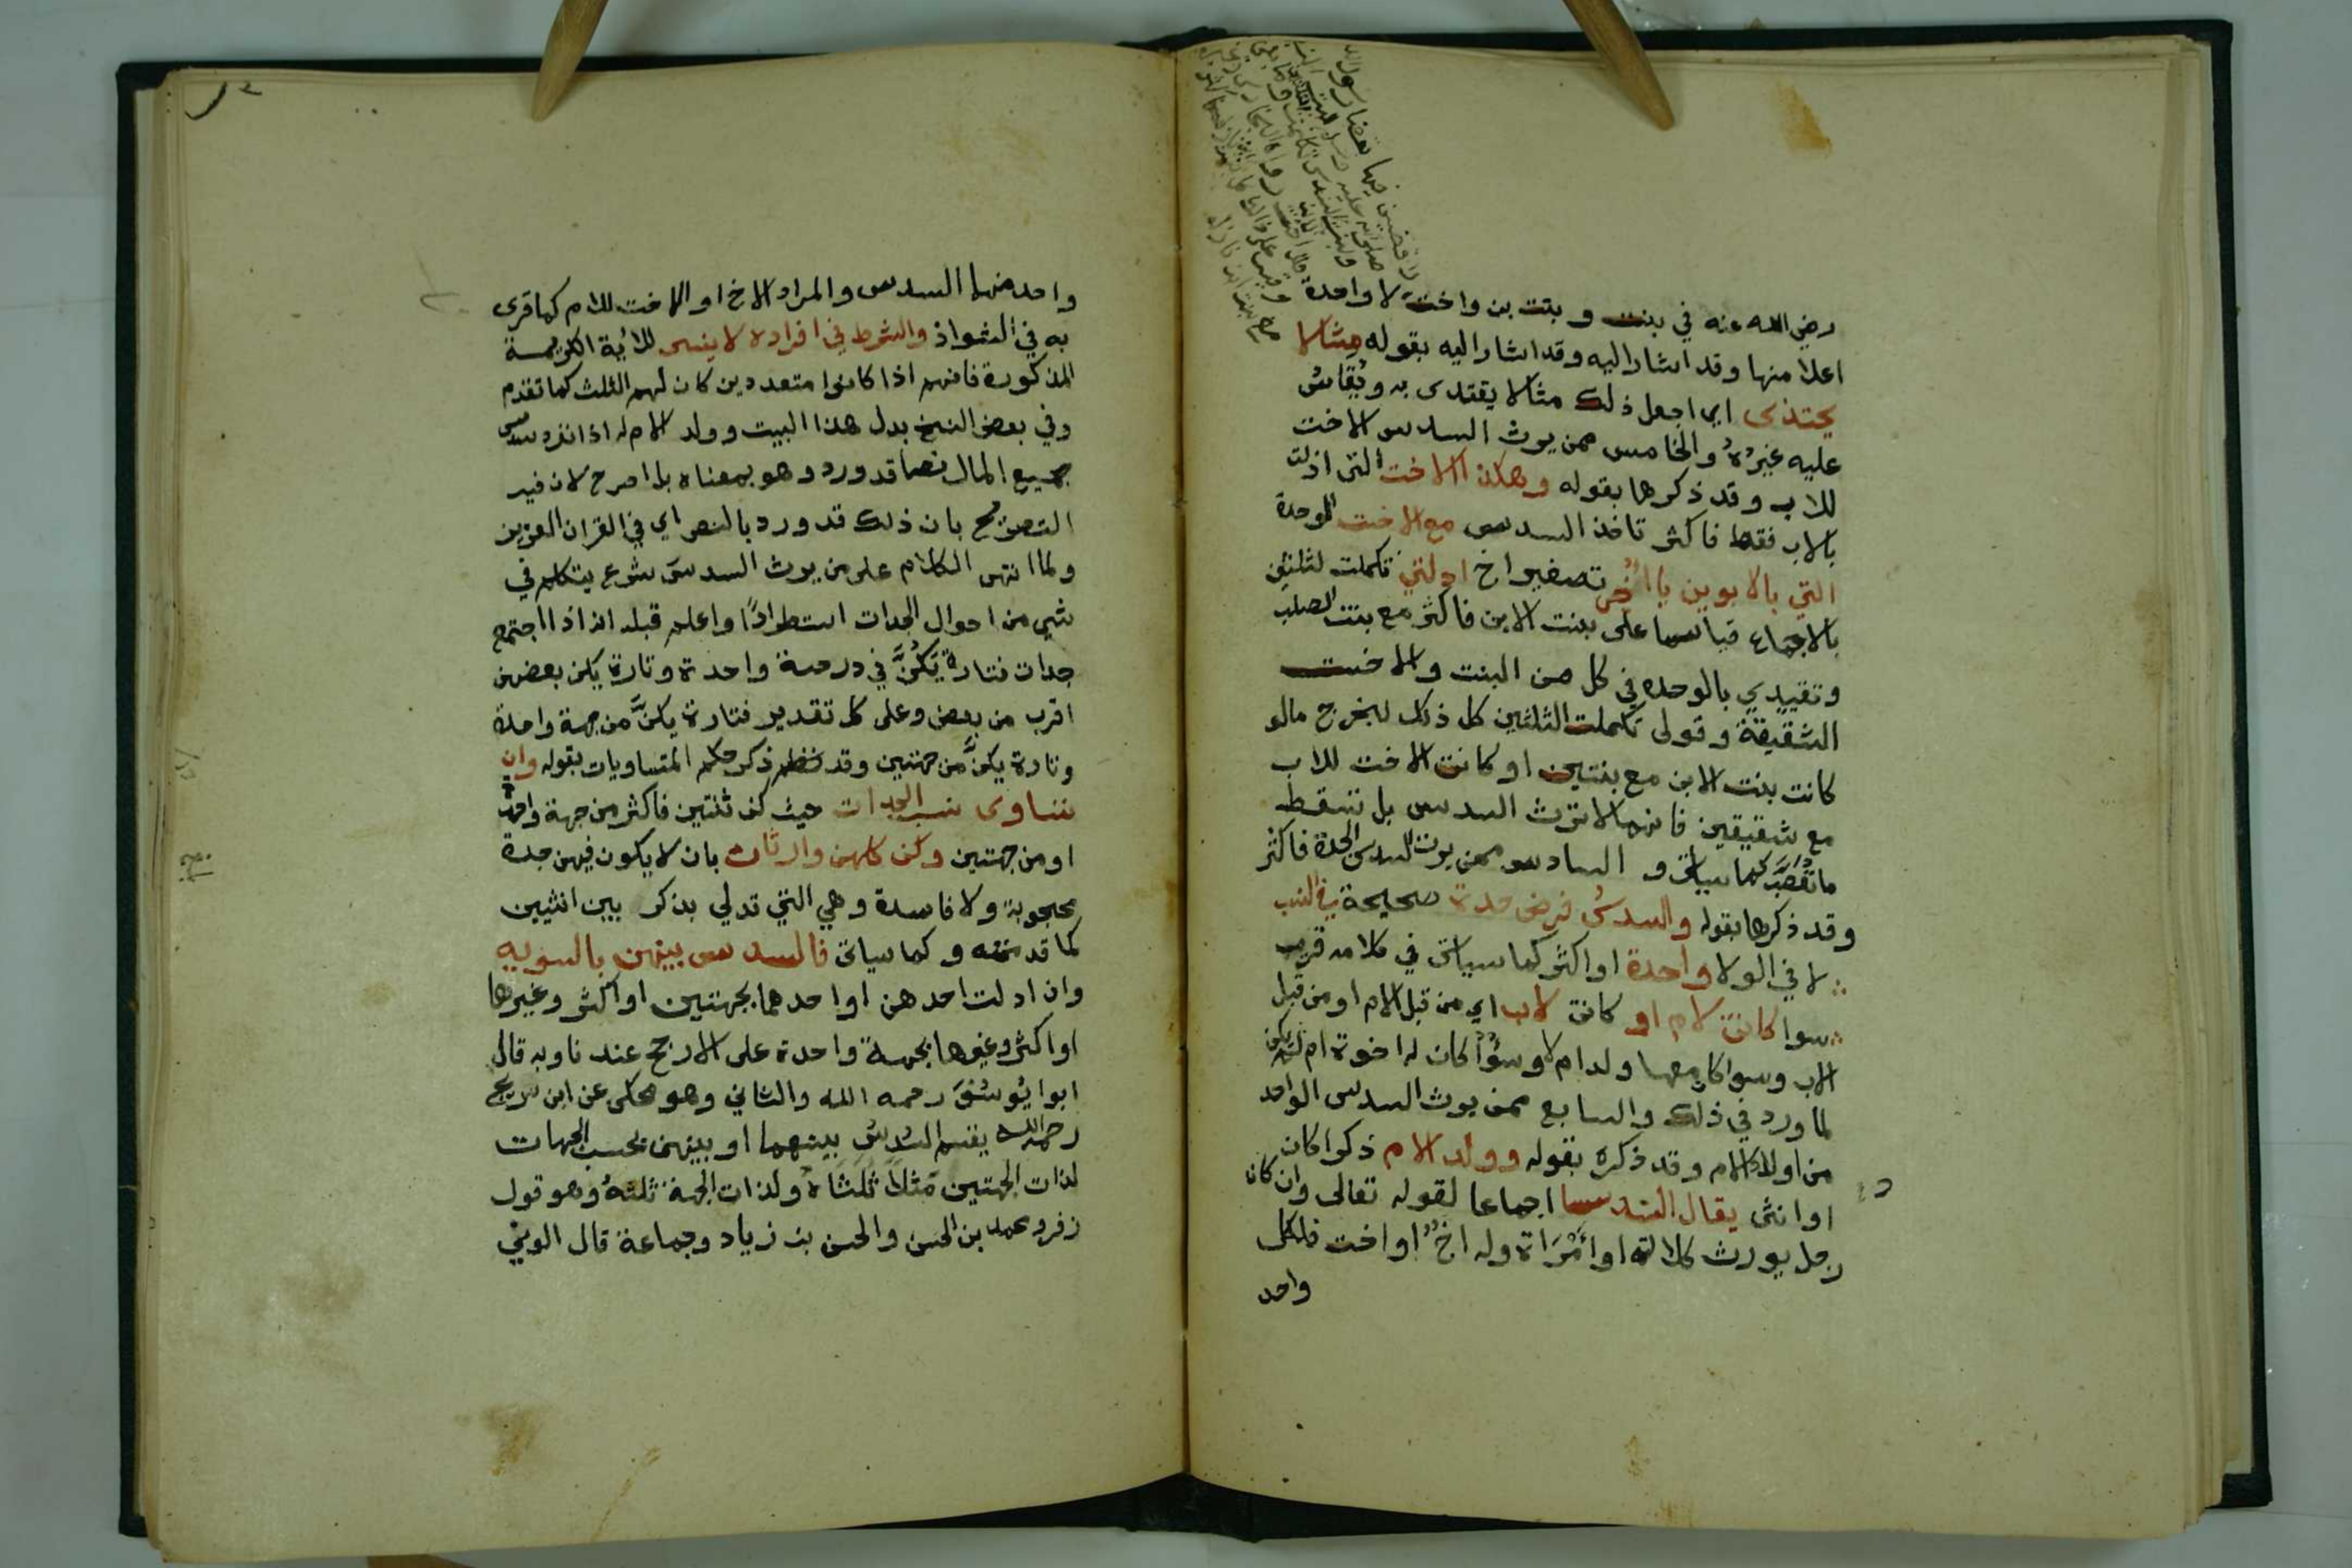 رضي الله عنه في بنت وبنت بن واخت لا واحدة
اعلا منها وقد اشار اليه وقد اشار اليه بقوله مثالا
يحتذى اي اجعل ذلك مثالا يقتدى به ويُقاسُ
عليه غيرُهُ والخامس ممن يرث السدس الاخت
للاب وقد ذكرها بقوله وهكذا الاخت التي ادلت
بالاب فقط فاكثر تاخذ السدس مع الاخت الموحدة
التي بالابوين يا اُخَي تصغير اخ ادلتي تكملت لثلثين
بالاجماع قياسا على بنت الابن فاكثر مع بنت الصلب
وتقييدي بالوحده في كل من البنت والاخت
الشقيقة وقولي تكملت الثلثين كل ذلك ليخرج مالو
كانت بنت الابن مع بنتين او كانت الاخت للاب
مع شقيقين فانهما لا ترث السدس بل تسقط
كما سياتي و السادس ممن يرث السدس الجدة فاكثر
وقد ذكرها بقوله والسدسُ فرض جدة صحيحة في النسب
لا في الولا واحدة او اكثر كما سياتي في كلامه قريب
سوا كانت لام او كانت لاب اي من قبل الام او من قبل
الاب وسوا كان معها ولد ام لا وسوُاً كان له اخوة ام لم يكن
لما ورد في ذلك والسابع ممن يرث السدس الواحد
من اولاد الام وقد ذكره بقوله وولد الام ذكرا كان
او انثى يقال السدسا اجماعا لقوله تعالى وان كان
رجل يورث كلالة او امْرَاة وله اخٌ او اخت فلكل
واحد
واحد منهما السدس والمراد الاخ او الاخت للام كما قرى
به في الشواذ والشرط في افراده لا ينسى للاية الكريمة
المذكورة فانهم اذا كانوا متعددين كان لهم الثلث كما تقدم
وفي بعض النسخ بدل هذا البيت وولد الام له اذا انفرد سدس
جميع المال نصا قد ورد وهو بمعناه بل اصرح لان فيه
التصريح بان ذلك قد ورد بالنص اي في القران العزيز
ولما انتهى الكلام على من يرث السدسَ شرع يتكلم في
شي من احوال الجدات استطرادًا واعلم قبله انه اذا اجتمع
جدات فتارة يَكُنَّ في درجة واحدة وتارة يكن بعضهن
اقرب من بعض وعلى كل تقدير فتارة يكنَّ من جهة واحدة
وتارة يكنَّ من جهتين وقد ذكر حكم المتساويات بقوله وان
تساوى نسب الجدات حيث كن ثنتين فاكثر من جهة واحدة
او من جهتين وكن كلهن وارثات بان لا يكون فيهن جدة
محجوبة ولا فاسدة وهي التي تدلي بذكر بين انثيين
كما قدمته وكما سياتي فالسدس بينهن بالسويه
وان ادلت احدهن او احدهما بجهتين او اكثر وغيرها
او اكثر وغيرها بجهة واحدة على الارجح عندنا وبه قال
ابوا يُوسُفَ رحمه الله والثاني وهو محكى عن ابن سريج
رحمه الله يقسم السُدسُ بينهما او بينهن بحسب الجهات
لذات الجهتين مَثلاً ثُلثَاهُ ولذات الجهة ثلثهُ وهو قول
زفر ومحمد بن الحسن والحسن بن زياد وجماعة قال الوني